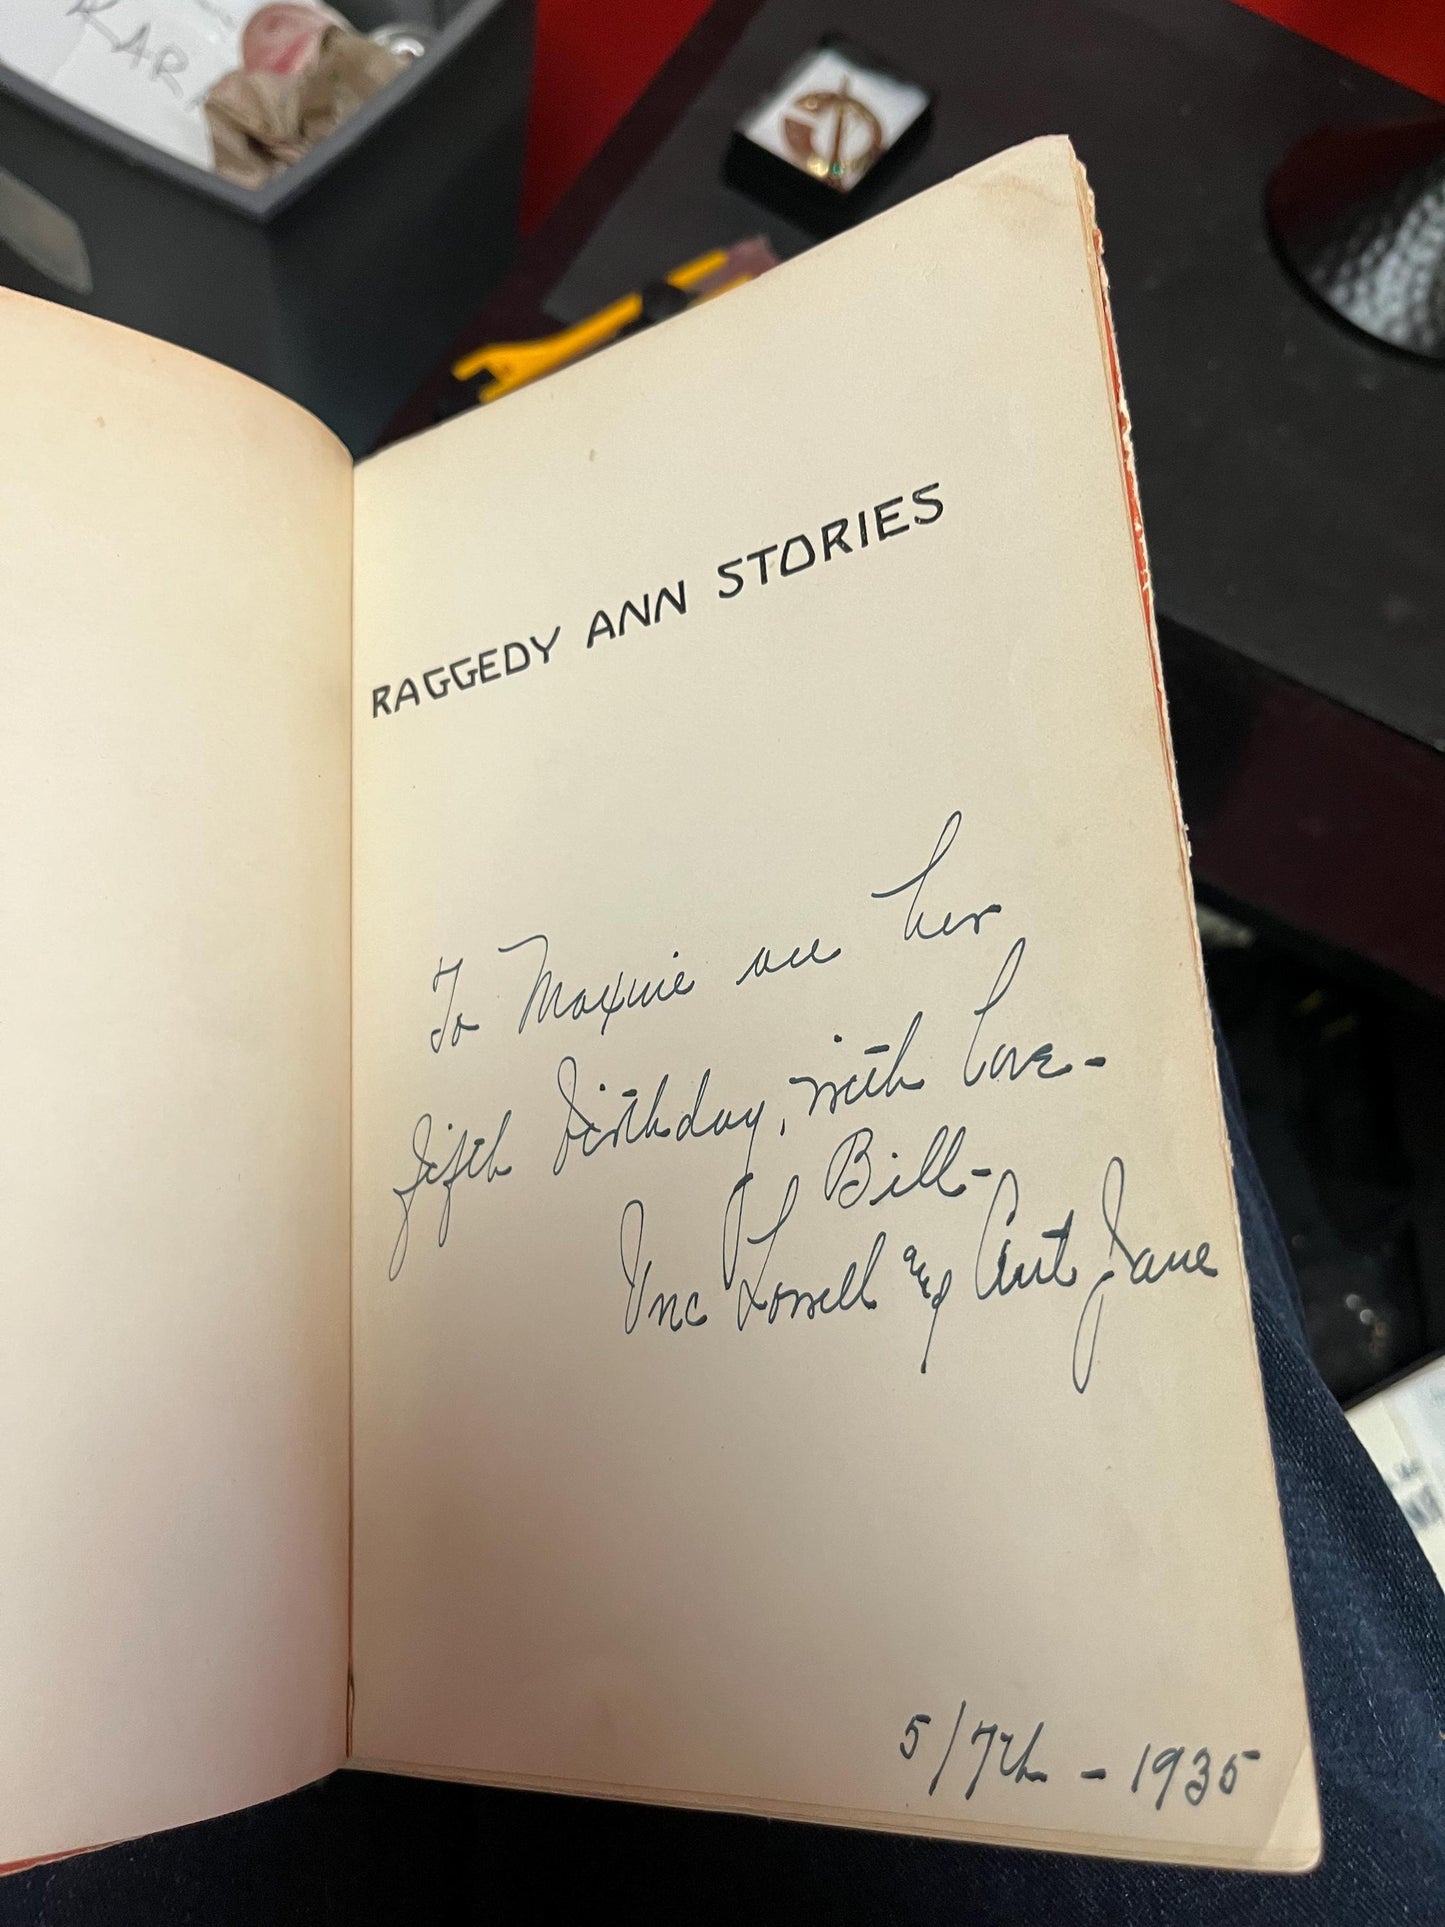 KAR
RAGGEDY ANN STORIES
To Maxine on her
fifth birthday, with love -
Bill -
Unc Lowell and Aunt Jane
5/7th - 1935